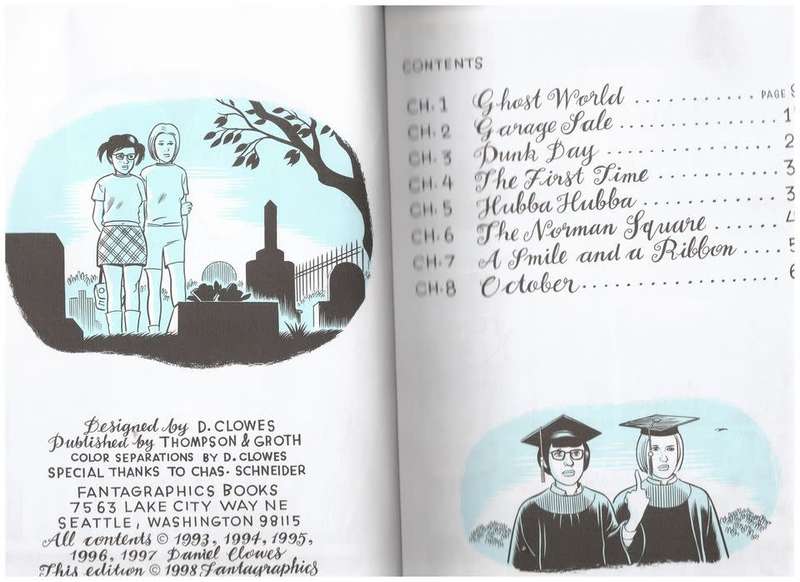 Designed by D. CLOWES
Published by THOMPSON & GROTH
COLOR SEPARATIONS BY D. CLOWES
SPECIAL THANKS TO CHAS. SCHNEIDER
FANTAGRAPHICS BOOKS
7563 LAKE CITY WAY NE
SEATTLE, WASHINGTON 98115
All contents © 1993, 1994, 1995,
1996, 1997 Daniel Clowes
This edition © 1998 Fantagraphics
CONTENTS
CH. 1 Ghost World ............ PAGE 9
CH. 2 Garage Sale ............ 1
CH. 3 Punk Day ............ 2
CH. 4 The First Time ............ 3
CH. 5 Hubba Hubba ............ 3
CH. 6 The Norman Square ....... 4
CH. 7 A Smile and a Ribbon .... 5
CH. 8 October ............ 6